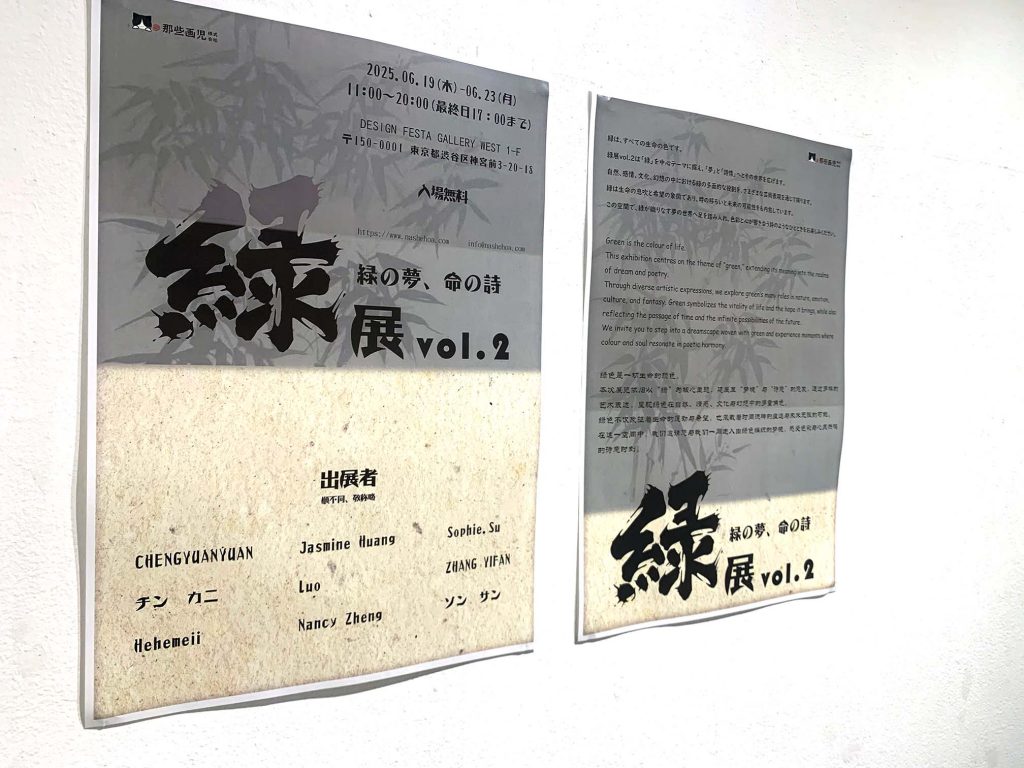 那些画児 株式会社
2025.06.19(木)-06.23(月)
11:00〜20:00(最終日17:00まで)
DESIGN FESTA GALLERY WEST 1-F
〒150-0001 東京都渋谷区神宮前3-20-18
入場無料
https://www.nashehoa.com info@nashehoa.com
緑
緑の夢、命の詩
展 vol.2
出展者
順不同、敬称略
CHENGYUANYUAN
チン カニ
Hehemeii
Jasmine Huang
Luo
Nancy Zheng
Sophie.Su
ZHANG YIFAN
ソン サン
那些画児
緑は、すべての生命の色です。
緑展vol.2は「緑」を中心テーマに据え、「夢」と「詩情」へとその世界を広げます。
自然、感情、文化、幻想の中における緑の多面的な役割を、さまざまな芸術表現を通じて探ります。
緑は生命の息吹と希望の象徴であり、時の移ろいと未来の可能性をも内包しています。
この空間で、緑が織りなす夢の世界へ足を踏み入れ、色彩と心が響き合う詩のようなひとときをお楽しみください。
Green is the colour of life.
This exhibition centres on the theme of "green," extending its meaning into the realms
of dream and poetry.
Through diverse artistic expressions, we explore green's many roles in nature, emotion,
culture, and fantasy. Green symbolizes the vitality of life and the hope it brings, while also
reflecting the passage of time and the infinite possibilities of the future.
We invite you to step into a dreamscape woven with green and experience moments where
colour and soul resonate in poetic harmony.
绿色是一切生命的颜色。
本次展览依旧以“绿”为核心主题，延展至“梦境”与“诗意”的意象。通过多样的
艺术表达，呈现绿色在自然、情感、文化与幻想中的多重角色。
绿色不仅象征着生命的律动与希望，也承载着时间流转的痕迹与未来无限的可能。
在这一空间中，我们邀请您与我们一同进入由绿色编织的梦境，感受色彩与心灵共鸣
的诗意时刻。
緑
緑の夢、命の詩
展 vol.2